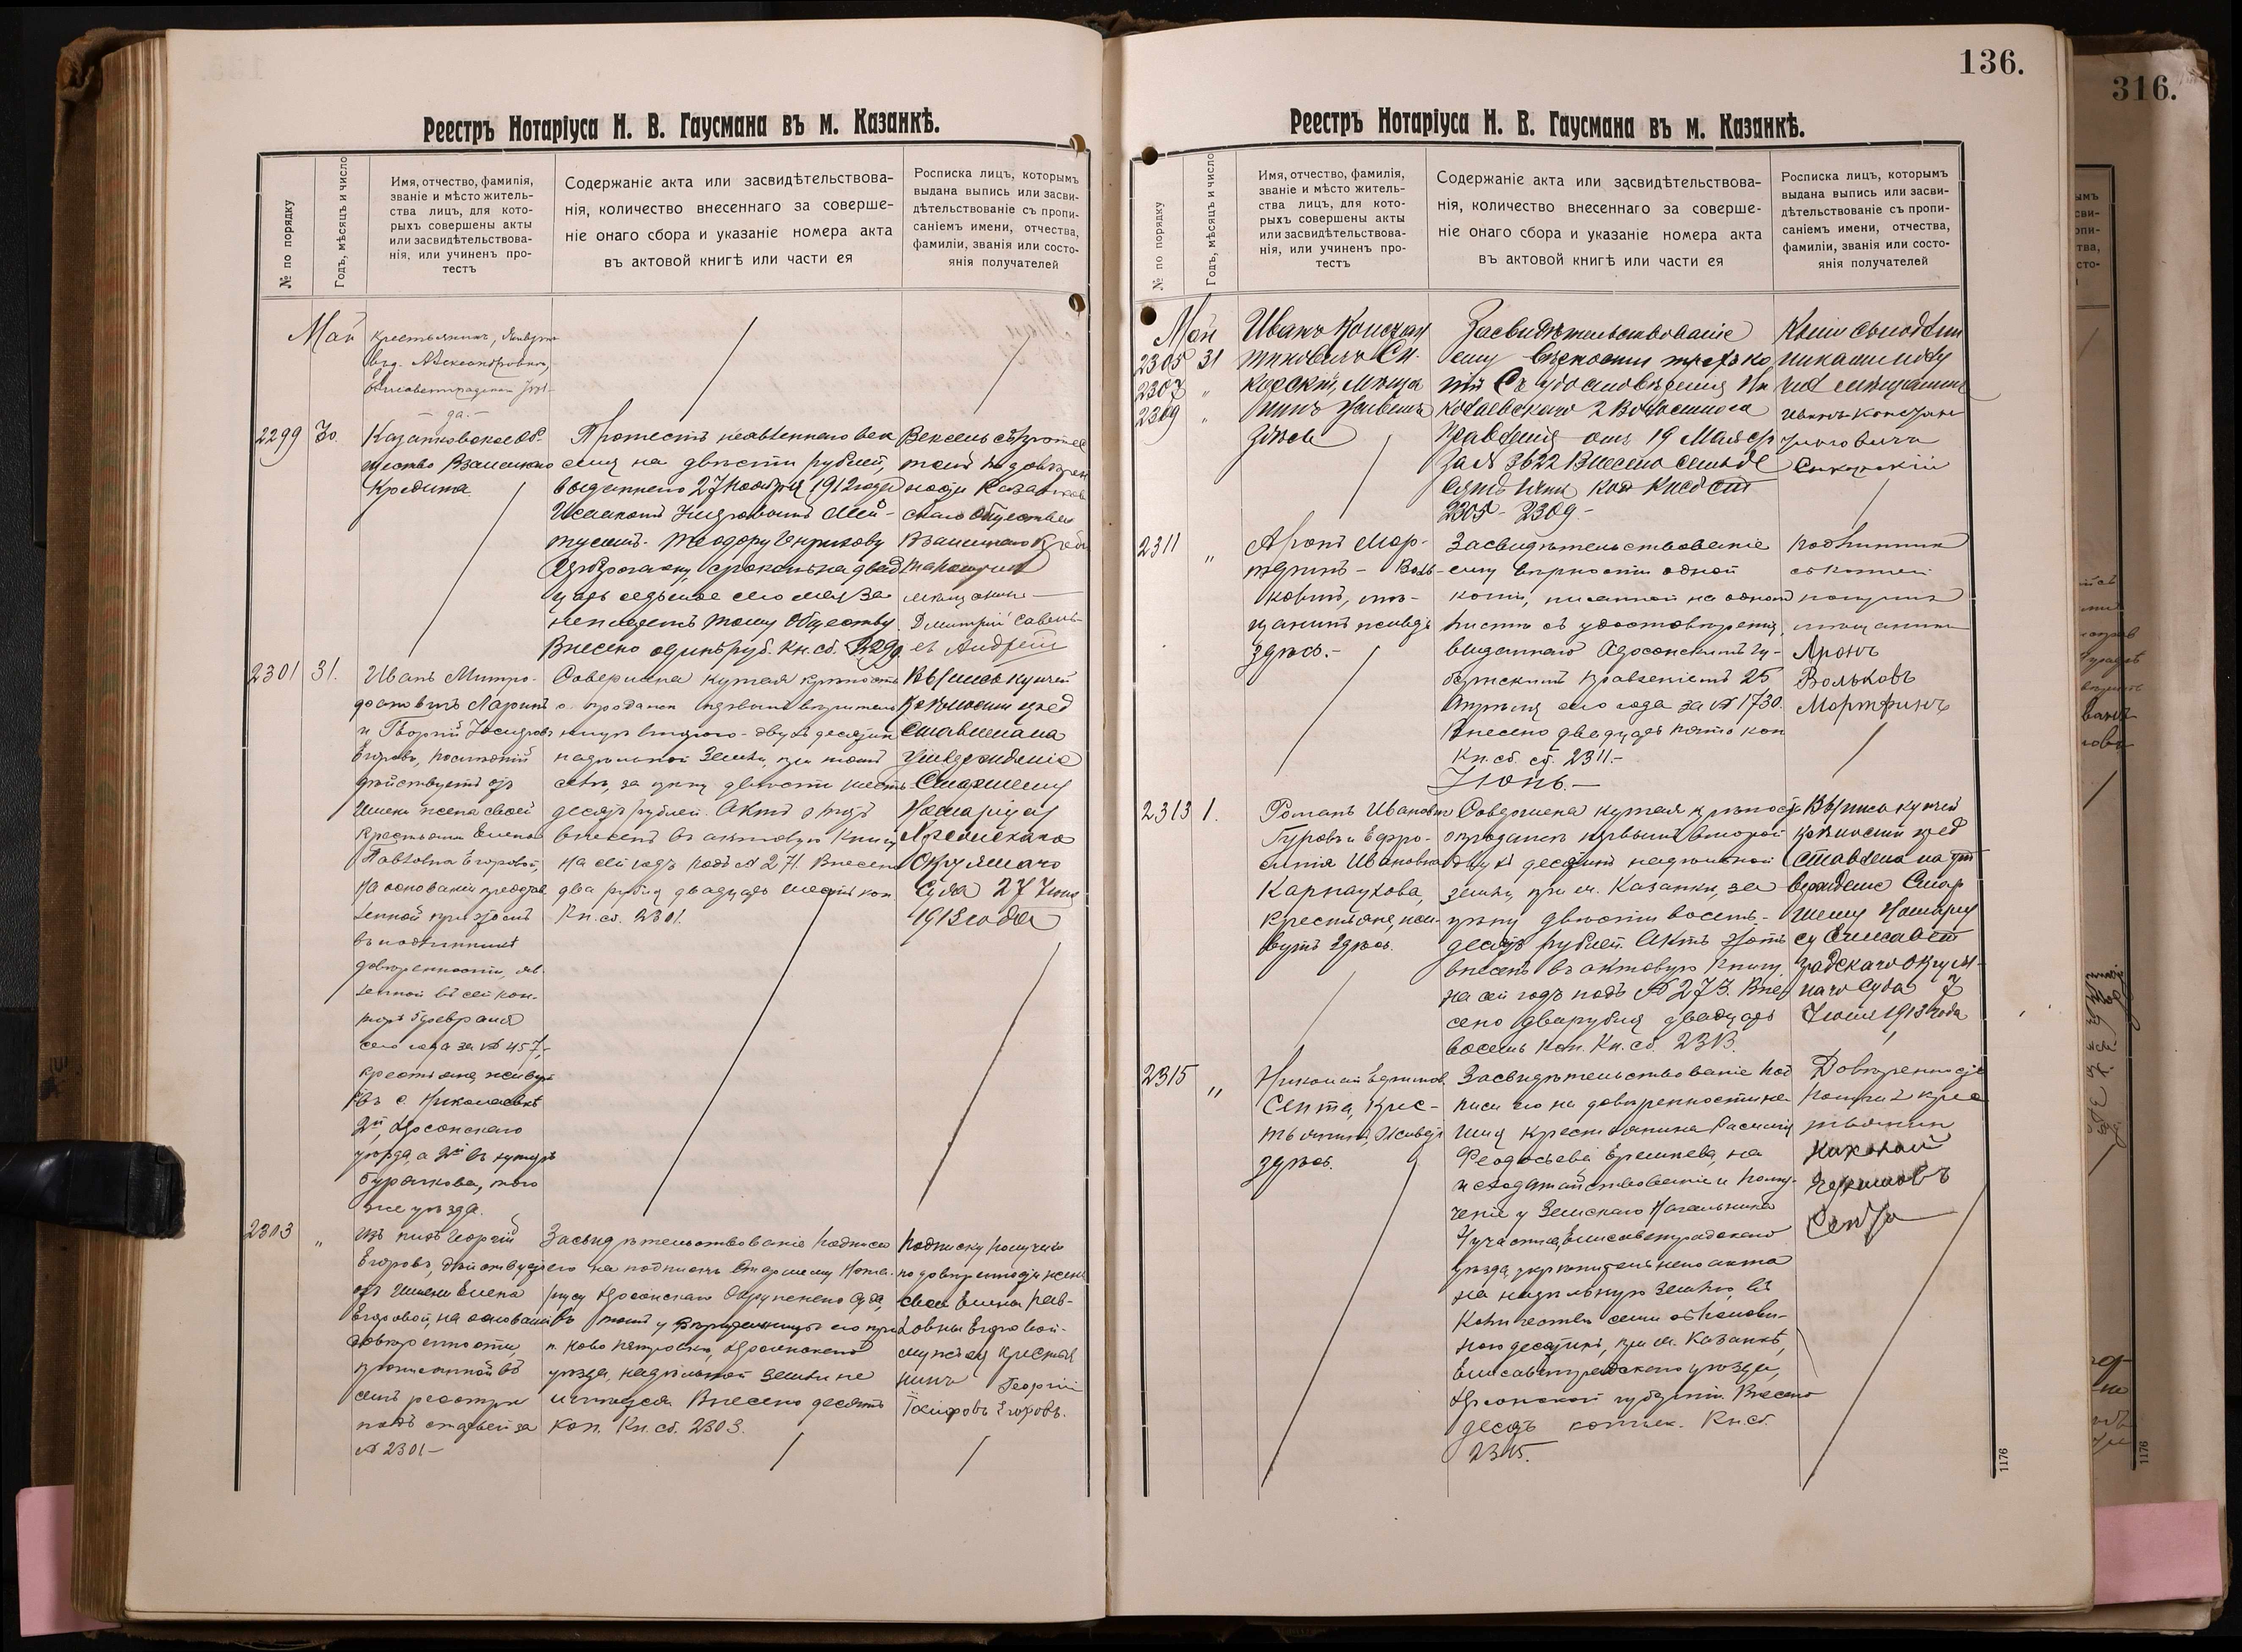 Реестръ Нотаріуса Н. В. Гаусмана въ м. Казанкѣ.
№ по порядку
Годъ, мѣсяцъ и число
Имя, отчество, фамилія,
званіе и мѣсто житель-
ства лицъ, для кото-
рыхъ совершены акты
или засвидѣтельствова-
нія, или учиненъ про-
тестъ
Содержаніе акта или засвидѣтельствова-
нія, количество внесеннаго за соверше-
ніе онаго сбора и указаніе номера акта
въ актовой книгѣ или части ея
Росписка лицъ, которымъ
выдана выпись или засви-
дѣтельствованіе съ пропи-
саніемъ имени, отчества,
фамиліи, званія или состо-
янія получателей
Май
крестьянинъ,
Александровки,
да.
2299 30.
Казанковское Об-
щество Взаимнаго
Кредита
Протестъ неявленнаго век
селя на двѣсти рублей,
выданнаго 27 Ноября 1912 года
Теодору Генрихову
срокомъ на двад
цать седьмое сего мая за
неплатежъ тому Обществу.
Внесено одинъ руб. Кн. сб. 2299.
Вексель съ протес
томъ по довѣрен
ности Казанков
скаго Общества
Взаимнаго Креди
та получилъ
мѣщанинъ
Дмитрій Савель
евъ Андреій
2301 31.
Иванъ Митро-
фановичъ Ларинъ
и Георгій Іосифовъ
Егоровъ, послѣдній
дѣйствуетъ отъ
имени жены своей
крестьянки Елены
Павловны Егоровой,
на основаніи представ
ленной при этомъ
въ подлинникѣ
довѣренности, яв-
ленной въ сей кон-
торѣ Февраля
сего года за № 457,
крестьяне, живутъ
въ с. Николаевкѣ
2й, Херсонскаго
уѣзда, а 2й въ хуторѣ
Бурлакова, того
же уѣзда.
Совершена купчая крѣпость
о продажѣ первымъ вѣрительницѣ
второго двухъ десятин
надѣльной земли, при томъ
селѣ, за цѣну двѣсти шесть-
десять рублей. Актъ этотъ
внесенъ въ актовую книгу
на сей годъ подъ № 271. Внесено
два рубля двадцать шесть коп.
Кн. сб. 2301.
Выпись купчей
крѣпости пред
ставлена на
утвержденіе
Старшему
Нотаріусу
Херсонскаго
Окружнаго
Суда 27 Іюня
1913 года
2303 "
Изъ нихъ Георгій
Егоровъ, дѣйствуетъ
отъ имени Елены
Егоровой, на основаніи
довѣренности,
прописанной въ
семъ реестрѣ
подъ статьей за
№ 2301 –
Засвидѣтельствованіе подписи
его на подпискѣ Старшему Нота-
ріусу Херсонскаго Окружнаго Суда,
въ томъ у вѣрительницы его при
п. Ново-Петровкѣ, Херсонскаго
уѣзда, надѣльной земли не
имѣется. Внесено десять
коп. Кн. сб. 2303.
Подписку получилъ
по довѣренности жены
своей Елены Пав-
ловны Егоровой
мужъ ея крестья
нинъ Георгій
Іосифовъ Егоровъ.
136.
Реестръ Нотаріуса Н. В. Гаусмана въ м. Казанкѣ.
№ по порядку
Годъ, мѣсяцъ и число
Имя, отчество, фамилія,
званіе и мѣсто житель-
ства лицъ, для кото-
рыхъ совершены акты
или засвидѣтельствова-
нія, или учиненъ про-
тестъ
Содержаніе акта или засвидѣтельствова-
нія, количество внесеннаго за соверше-
ніе онаго сбора и указаніе номера акта
въ актовой книгѣ или части ея
Росписка лицъ, которымъ
выдана выпись или засви-
дѣтельствованіе съ пропи-
саніемъ имени, отчества,
фамиліи, званія или состо-
янія получателей
Май
2305 31
2307 "
2309 "
Иванъ Констан
тиновичъ Си-
корскій, мѣща
нинъ живетъ
здѣсь
Засвидѣтельствованіе
ему вѣрности трехъ ко
пій съ удостовѣренія Ни
колаевскаго 2 Волостного
Правленія отъ 19 Мая с/г
за № 3622 Внесено семьде
сятъ коп. Кн. сб. ст.
2305 - 2309 -
Копіи съ подлин
никами полу
чилъ мѣщанинъ
Иванъ Констан
тиновичъ
Сикорскій
2311 "
Аронъ Мор-
тфинъ - Воль-
ковичъ, мѣ-
щанинъ живетъ
здѣсь.-
Засвидѣтельствованіе
ему вѣрности одной
копіи, писанной на одномъ
листѣ съ удостовѣренія,
выданнаго Херсонскимъ Гу-
бернскимъ Правленіемъ 25
Апрѣля сего года за № 1730.
Внесено двадцать пять коп
Кн. сб. ст. 2311.-
Подлинникъ
съ копіей
получилъ
мѣщанинъ
Аронъ
Вольковъ
Мортфинъ
Іюнь.-
2313 1.
Романъ Ивановъ
Гуровъ и Ефро-
синія Ивановна
Карпаухова,
крестьяне, жи-
вутъ здѣсь.
Совершена купчая крѣпость
о продажѣ первымъ второй
двухъ десятинъ надѣльной
земли, при м. Казанкѣ, за
цѣну двѣсти восемь-
десятъ рублей. Актъ этотъ
внесенъ въ актовую книгу
на сей годъ подъ № 273. Вне-
сено два рубля двадцать
восемь коп. Кн. сб. 2313.
Выпись купчей
крѣпости пред
ставлена на ут
вержденіе Стар
шему Нотаріу
су Елисавет
градскаго Окруж-
наго Суда 7
Іюня 1913 года
2315 "
Николай Ефимовъ
Сента, крес-
тьянинъ, живетъ
здѣсь.
Засвидѣтельствованіе под
писи его на довѣренности на
имя крестьянина
Феодосьева на
исходатайствованіе и полу-
ченіе у Земскаго Начальника
участка, Елисаветградскаго
уѣзда, укрѣпительнаго акта
на надѣльную землю, въ
количествѣ семи съ полови-
ною десятинъ, при м. Казанкѣ,
Елисаветградскаго уѣзда,
Херсонской губерніи. Внесено
десять копѣек. Кн. сб.
2315.
Довѣренность
получилъ крес
тьянин
Николай
Сента
1176
316.
1176